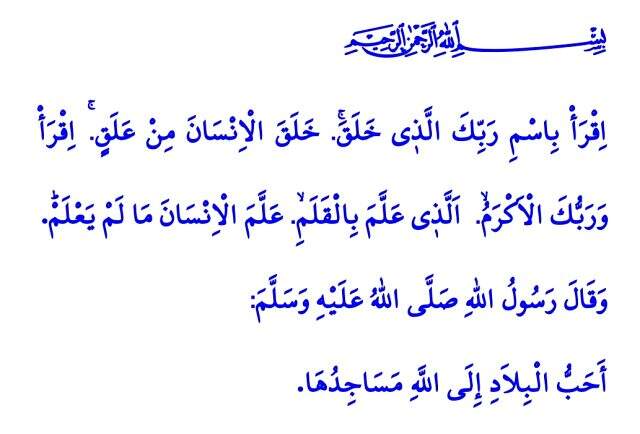 بِسْمِ اللهِ الرَّحْمٰنِ الرَّحِيمِ
اِقْرَأْ بِاسْمِ رَبِّكَ الَّذٖى خَلَقَۚ. خَلَقَ الْاِنْسَانَ مِنْ عَلَقٍۚ. اِقْرَأْ
وَرَبُّكَ الْاَكْرَمُۙ. اَلَّذٖى عَلَّمَ بِالْقَلَمِۙ. عَلَّمَ الْاِنْسَانَ مَا لَمْ يَعْلَمْؕ.
وَقَالَ رَسُولُ اللهِ صَلَّى اللهُ عَلَيْهِ وَسَلَّمَ:
أَحَبُّ الْبِلاَدِ إِلَى اللَّهِ مَسَاجِدُهَا.